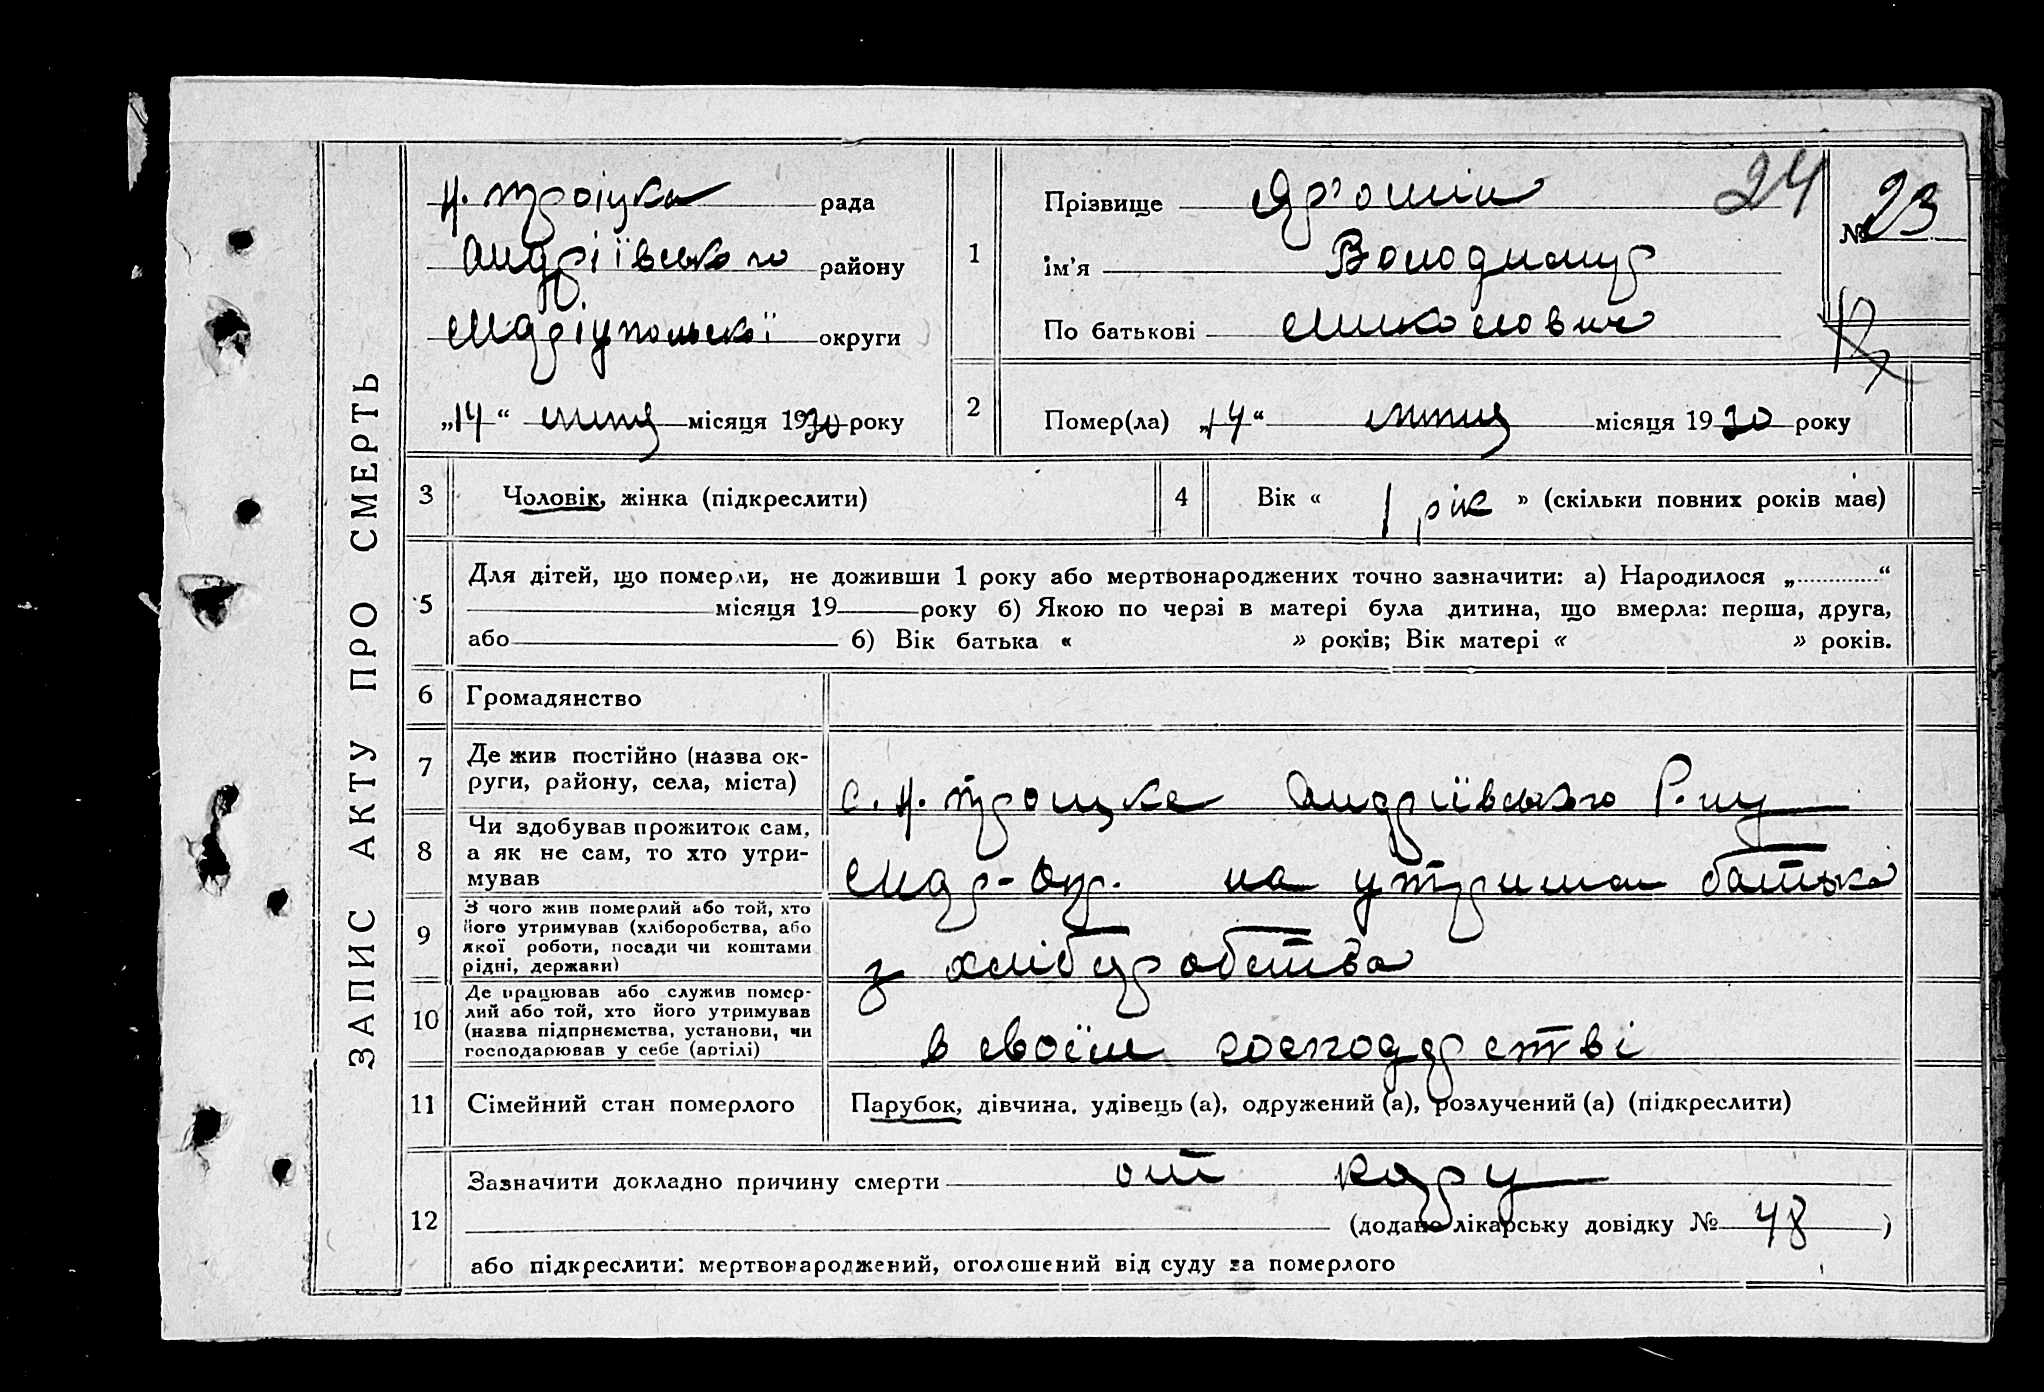 ЗАПИС АКТУ ПРО СМЕРТЬ
Н. Троіцка рада
Андріївського району
Маріупольскої округи
„14“ липця місяця 1930 року
1
Прізвище Яр'ошін 24
ім'я Володимир
По батькові Миколович
№ 23
2
Помер(ла) „14“ липця місяця 1930 року
3 Чоловік, жінка (підкреслити)
4 Вік « 1 рік » (скільки повних років має)
5 Для дітей, що померли, не доживши 1 року або мертвонароджених точно зазначити: а) Народилося „ “
місяця 19 року б) Якою по черзі в матері була дитина, що вмерла: перша, друга,
або б) Вік батька « » років; Вік матері « » років.
6 Громадянство
7 Де жив постійно (назва ок-
руги, району, села, міста)
с. Н. Троицке Андріївського Р-ну
8 Чи здобував прожиток сам,
а як не сам, то хто утри-
мував
Мар-Окр. на утриман батька
9 З чого жив померлий або той, хто
його утримував (хліборобства, або
якої роботи, посади чи коштами
рідні, держави)
з хліборобства
10 Де працював або служив помер-
лий або той, хто його утримував
(назва підприємства, установи, чи
господарював у себе (артілі)
в своїм господарстві
11 Сімейний стан померлого
Парубок, дівчина, удівець (а), одружений (а), розлучений (а) (підкреслити)
12 Зазначити докладно причину смерти от кору
(додано лікарську довідку № 48 )
або підкреслити: мертвонароджений, оголошений від суду за померлого